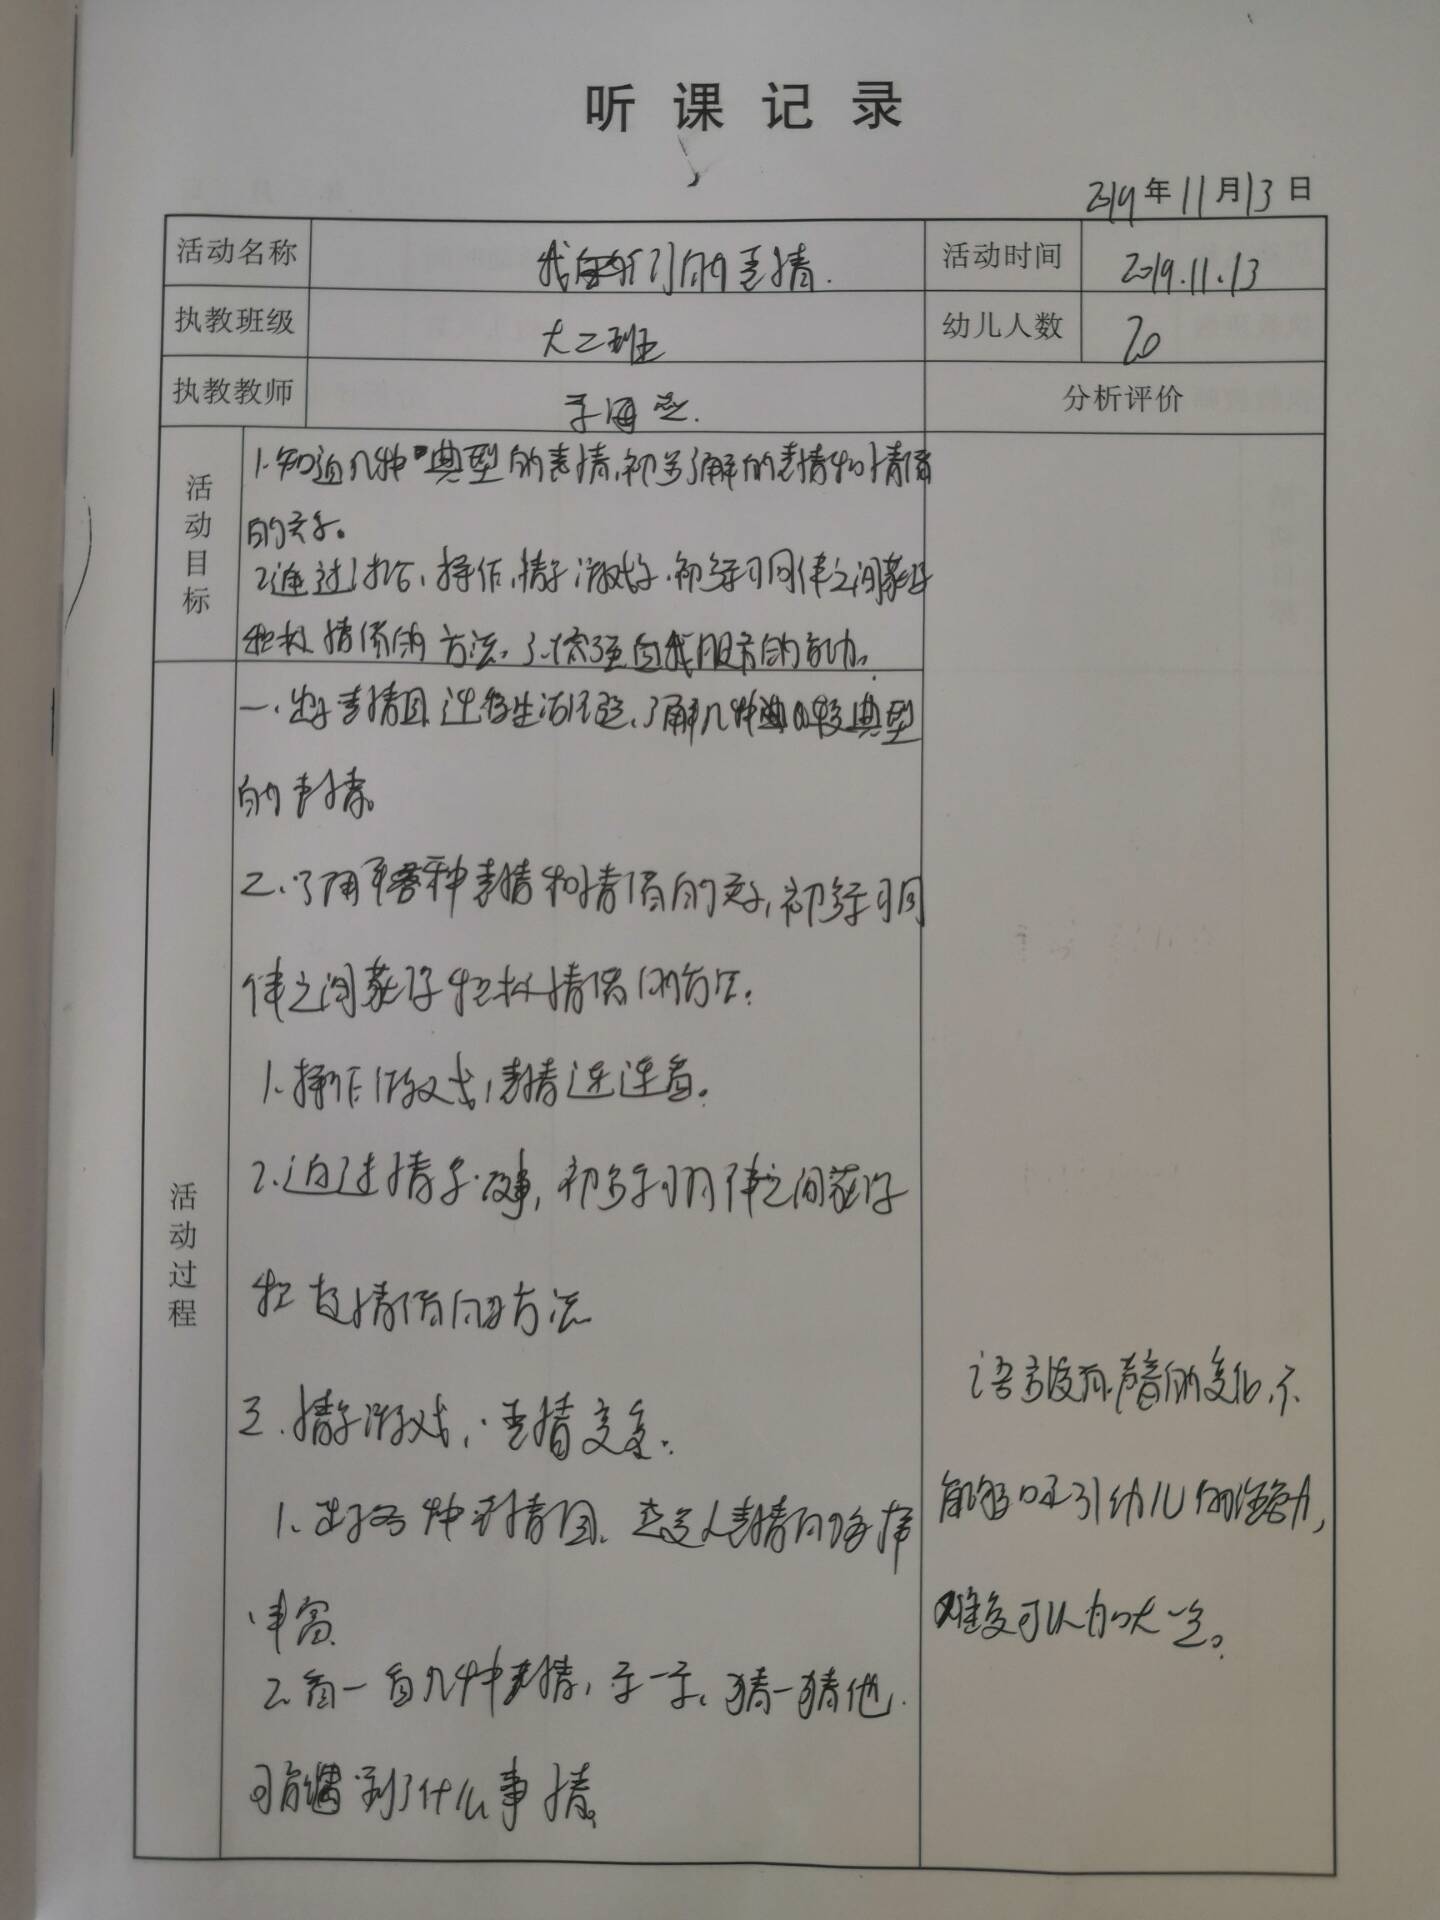 听课记录
2019年11月13日
活动名称 我们的表情. 活动时间 2019.11.13
执教班级 大二班 幼儿人数 20
执教教师 于海 分析评价
活动目标
1.知道几种典型的表情,初步了解的表情和情绪
的关系。
2.通过讨论、操作、情景游戏等,初步学习同伴之间获得
积极情绪的方法。3.增强自我服务的能力。
活动过程
一、出示表情图,迁移生活经验,了解几种比较典型
的表情。
二、了解各种表情和情绪的关系,初步学习同
伴之间获得积极情绪的方法.
1.操作游戏,表情连连看。
2.通过情景故事,初步学习同伴之间获得
积极情绪的方法
三.情景游戏,表情变变.
1.出示各种表情图,表情的多样
丰富
2.看一看几种表情,学一学,猜一猜他
可能遇到了什么事情。
语言没有声音的变化,不
能够吸引幼儿的注意力,
难度可以加大一些。